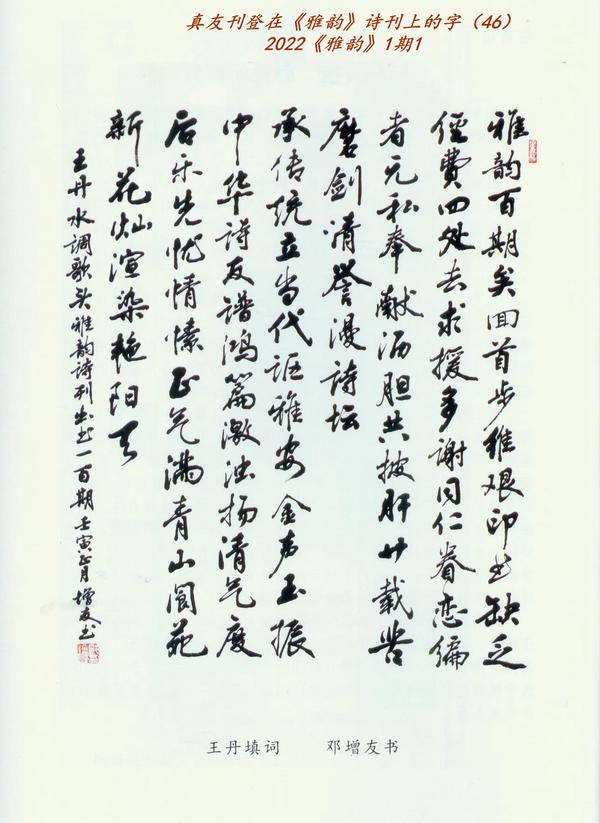 真友刊登在《雅韵》诗刊上的字（46）
2022《雅韵》1期1
雅韵百期矣回首步维艰印书缺乏
经费四处去求援多谢同仁眷恋编
者无私奉献沥胆共披肝廿载苦
磨剑清誉漫诗坛
承传统立当代讴雅安金声玉振
中华诗友谱鸿篇激浊扬清气度
后乐先忧情愫正气满青山阆苑
新花灿渲染艳阳天
王丹水调歌头雅韵诗刊出书一百期壬寅正月增友书
王丹填词 邓增友书